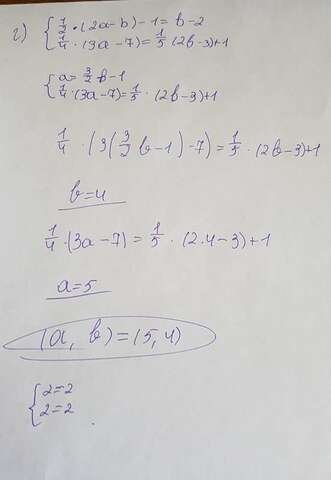 г) { 1/2 · (2a-b)-1=b-2
1/4 · (3a-7)=1/5 (2b-3)+1
{ a=3/2 b-1
1/4 · (3a-7)=1/5 · (2b-3)+1
1/4 · (3(3/2 b-1)-7)=1/5 · (2b-3)+1
b=4
1/4 · (3a-7)=1/5 · (2·4-3)+1
a=5
(a, b)=(5,4)
{ 2=2
2=2